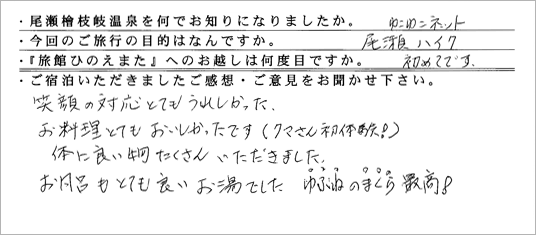 ・尾瀬檜枝岐温泉を何でお知りになりましたか。 ゆこゆこネット
・今回のご旅行の目的はなんですか。 尾瀬ハイク
・『旅館ひのえまた』へのお越しは何度目ですか。 初めてです、
・ご宿泊いただきましたご感想・ご意見をお聞かせ下さい。
笑顔の対応とてもうれしかった、
お料理とてもおいしかったです(クマさん初体験!)
体に良い物たくさんいただきました、
お風呂もとても良いお湯でした ゆぶねのまくら最高!